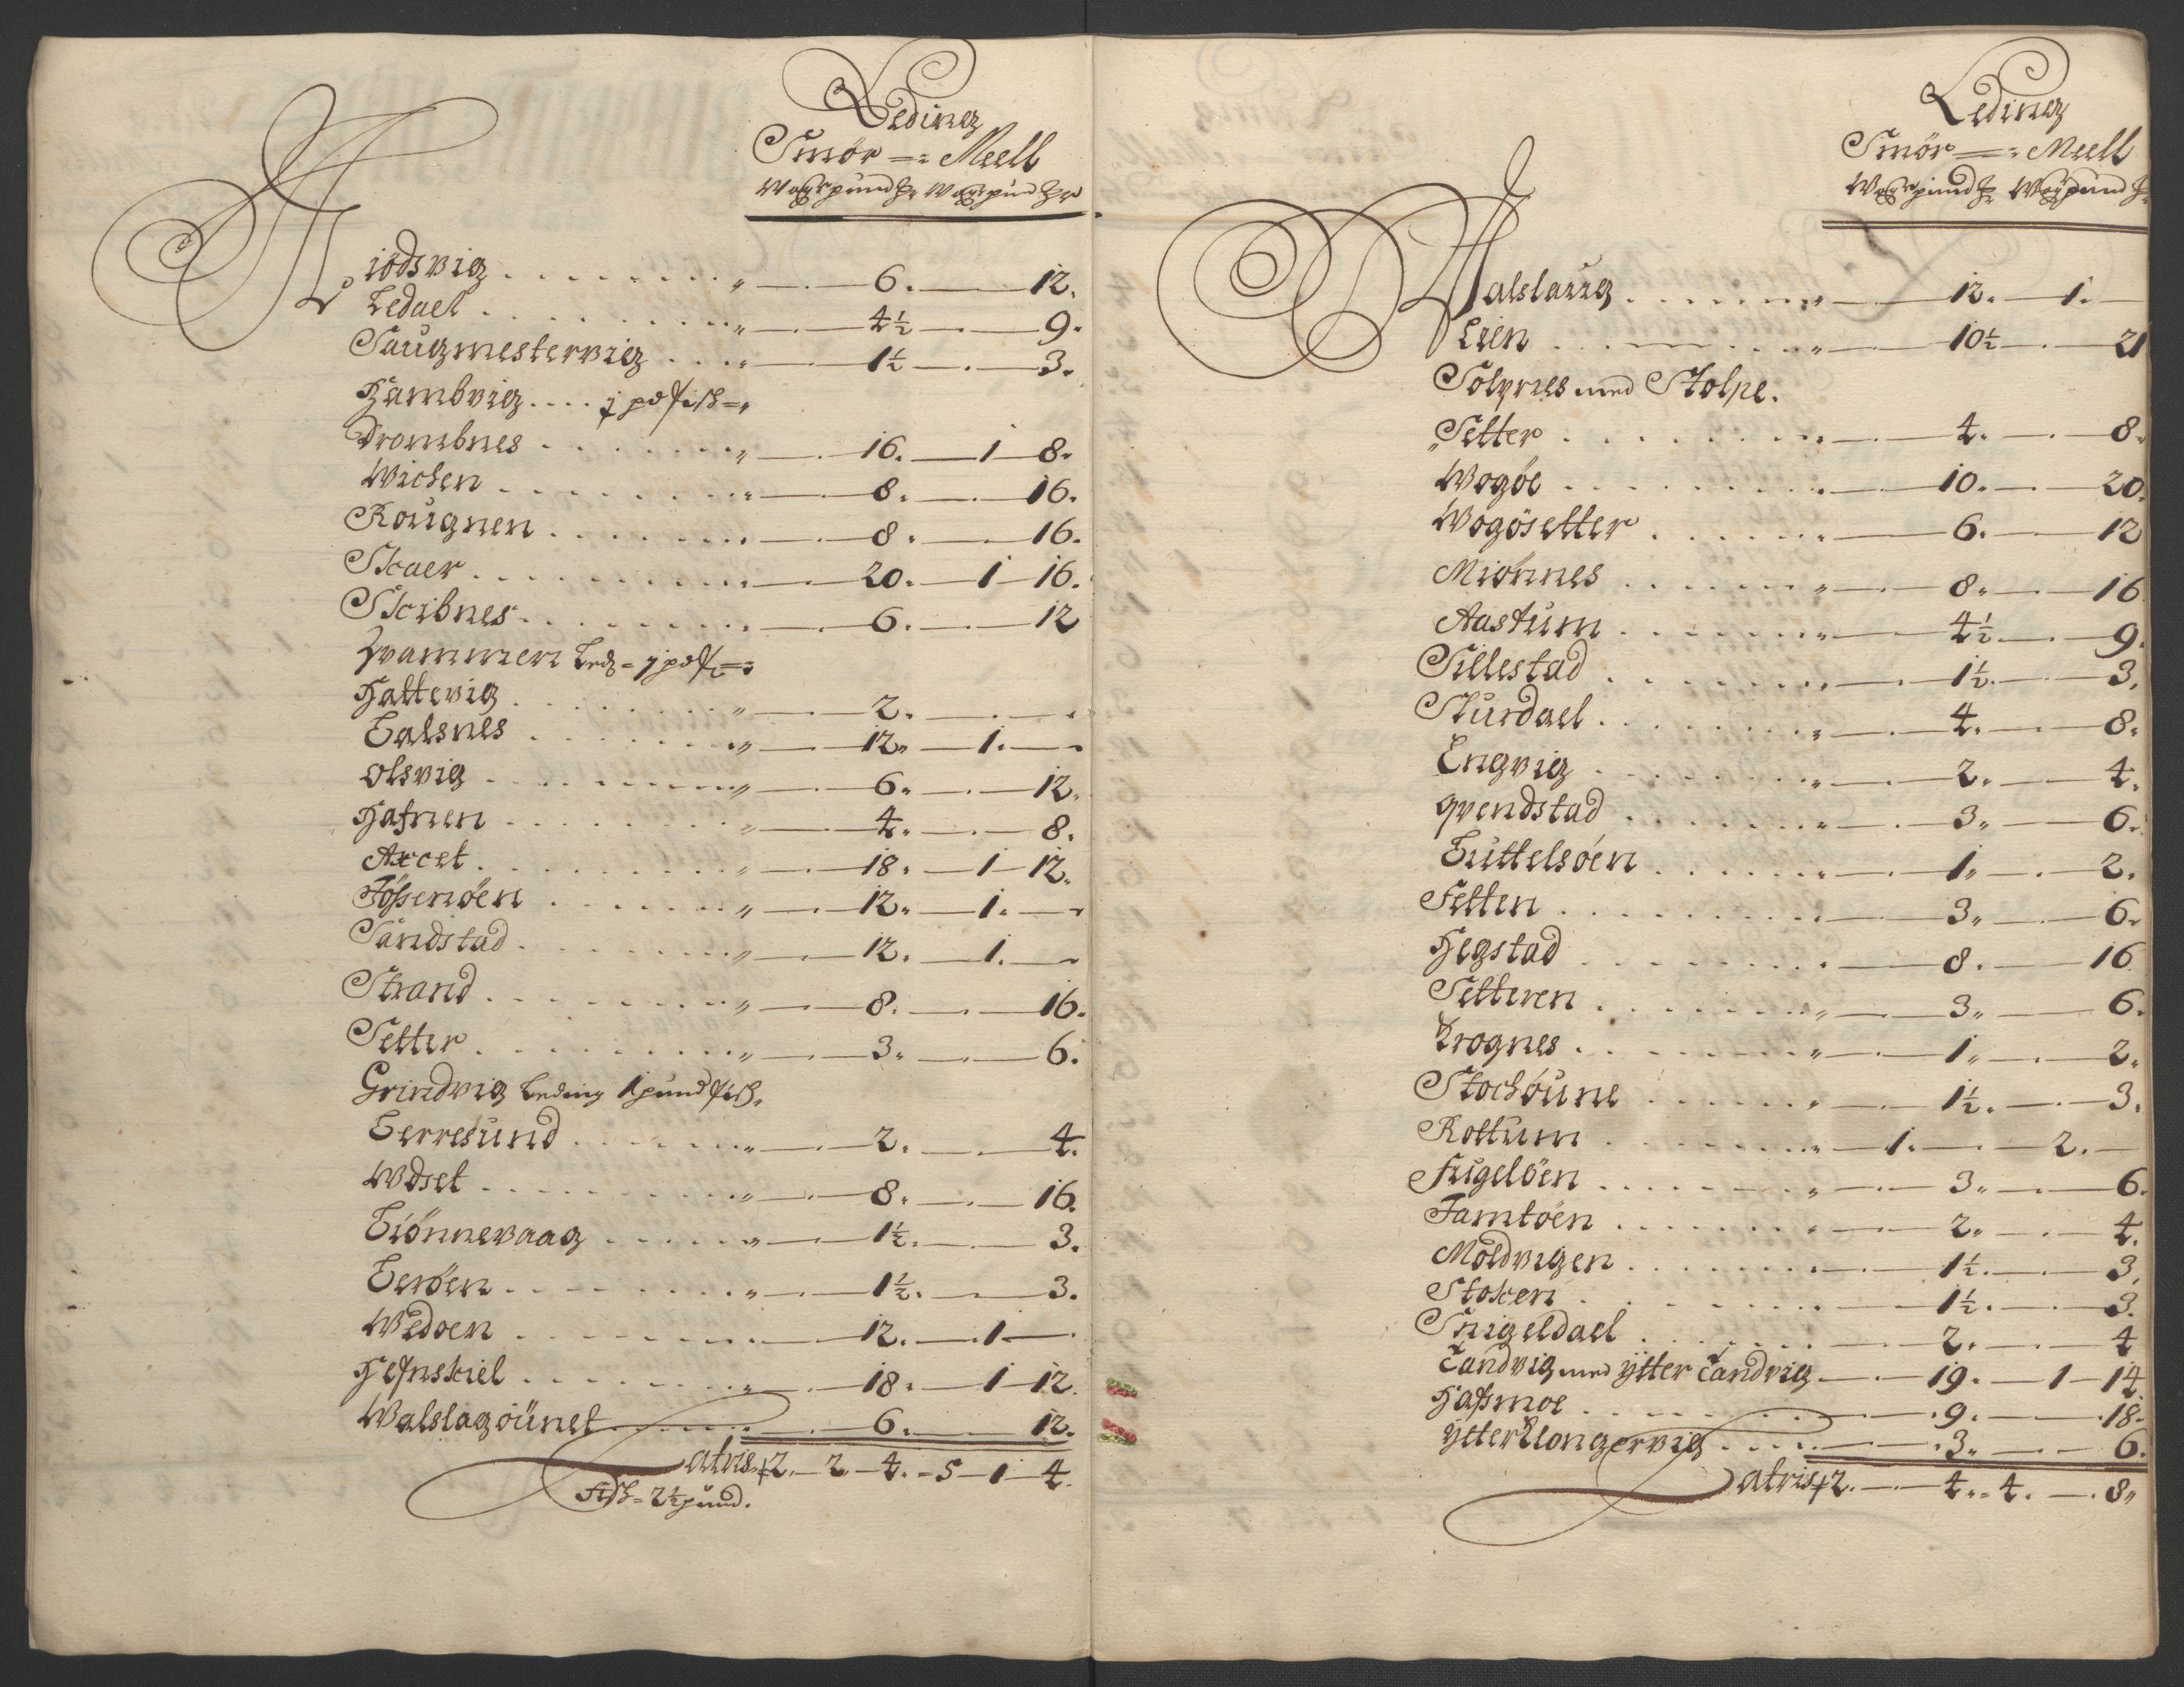 Leding
Smör =: Meell
Wog pund Wog pund
Kiödsvig . . . . . . . . " — 6. — 12.
Ledael . . . . . . . . " — 4½ — 9.
Saugmestervig . . . . " — 1½ — 3.
Hambvig . . . . j pd fisch
Drombnes . . . . . . . " — 16. — 1 — 8.
Wichen . . . . . . . . " — 8. — 16.
Rougnen . . . . . . . . — 8. — 16.
Skaer . . . . . . . . . — 20. — 1 — 16.
Skibnes . . . . . . . . — 6. — 12
Hvammen Led = j pd
Hattevig . . . . . . . " — 2. —
Balsnes . . . . . . . " — 12 — 1. —
Olsvig . . . . . . . . " — 6. — 12.
Hafnen . . . . . . . . " — 4. — 8.
Axcet . . . . . . . . . " — 18. — 1 — 12.
Jössenöen . . . . . . " — 12. — 1. —
Sandstad . . . . . . . " — 12. — 1. —
Strand . . . . . . . . " — 8. — 16.
Setter . . . . . . . . . " — 3. — 6.
Grindvig Leding 1 pund fisch.
Berresund . . . . . . " — 2. — 4.
Wdset . . . . . . . . . " — 8. — 16.
Biönnevaag . . . . . " — 1½. — 3.
Beröen . . . . . . . . " — 1½. — 3.
Wedöen . . . . . . . . — 12. — 1 —
Hefnskiel . . . . . . . — 18. — 1 — 12.
Walslagöunet . . . . — 6. — 12.
Latris 2. — 2. — 4. — 5 — 1 — 4.
Fisch = 2½ pund.
Leding
Smör =: Meell
Wog pund Wog pund
Aalslaug . . . . . . . " — 12. — 1. —
Lien . . . . . . . . . " — 10½ — 21
Solyrnes med Stolpe.
Setter . . . . . . . . . — 4. — 8.
Wogöe . . . . . . . . . — 10. — 20.
Wogösetter . . . . . . — 6. — 12
Miönnes . . . . . . . " — 8. — 16
Aastum . . . . . . . . " — 4½ — 9.
Sillestad . . . . . . . " — 1½. — 3.
Sturdael . . . . . . . " — 4. — 8.
Engvig . . . . . . . . " — 2. — 4.
Qvendstad . . . . . . " — 3. — 6.
Buttelsöen . . . . . . — 1. — 2.
Fetten . . . . . . . . . — 3. — 6.
Hegstad . . . . . . . . — 8. — 16
Setteren . . . . . . . " — 3. — 6.
Krognes . . . . . . . " — 1. — 2.
Stochöune . . . . . . " — 1½. — 3.
Rottum . . . . . . . . " — 1. — 2. —
Fugelöen . . . . . . . " — 3. — 6.
Jamtöen . . . . . . . " — 2. — 4.
Moldvigen . . . . . . — 1½. — 3.
Stoken . . . . . . . . — 1½. — 3.
Snigeldael . . . . . . — 2. — 4
Tandvig med Ytter Tandvig — 19. — 1 — 14.
Hassmoe . . . . . . . — 9. — 18.
Ytter Klongervig . . . . — 3. — 6.
Latris 2. — 4. — 4. — 8.